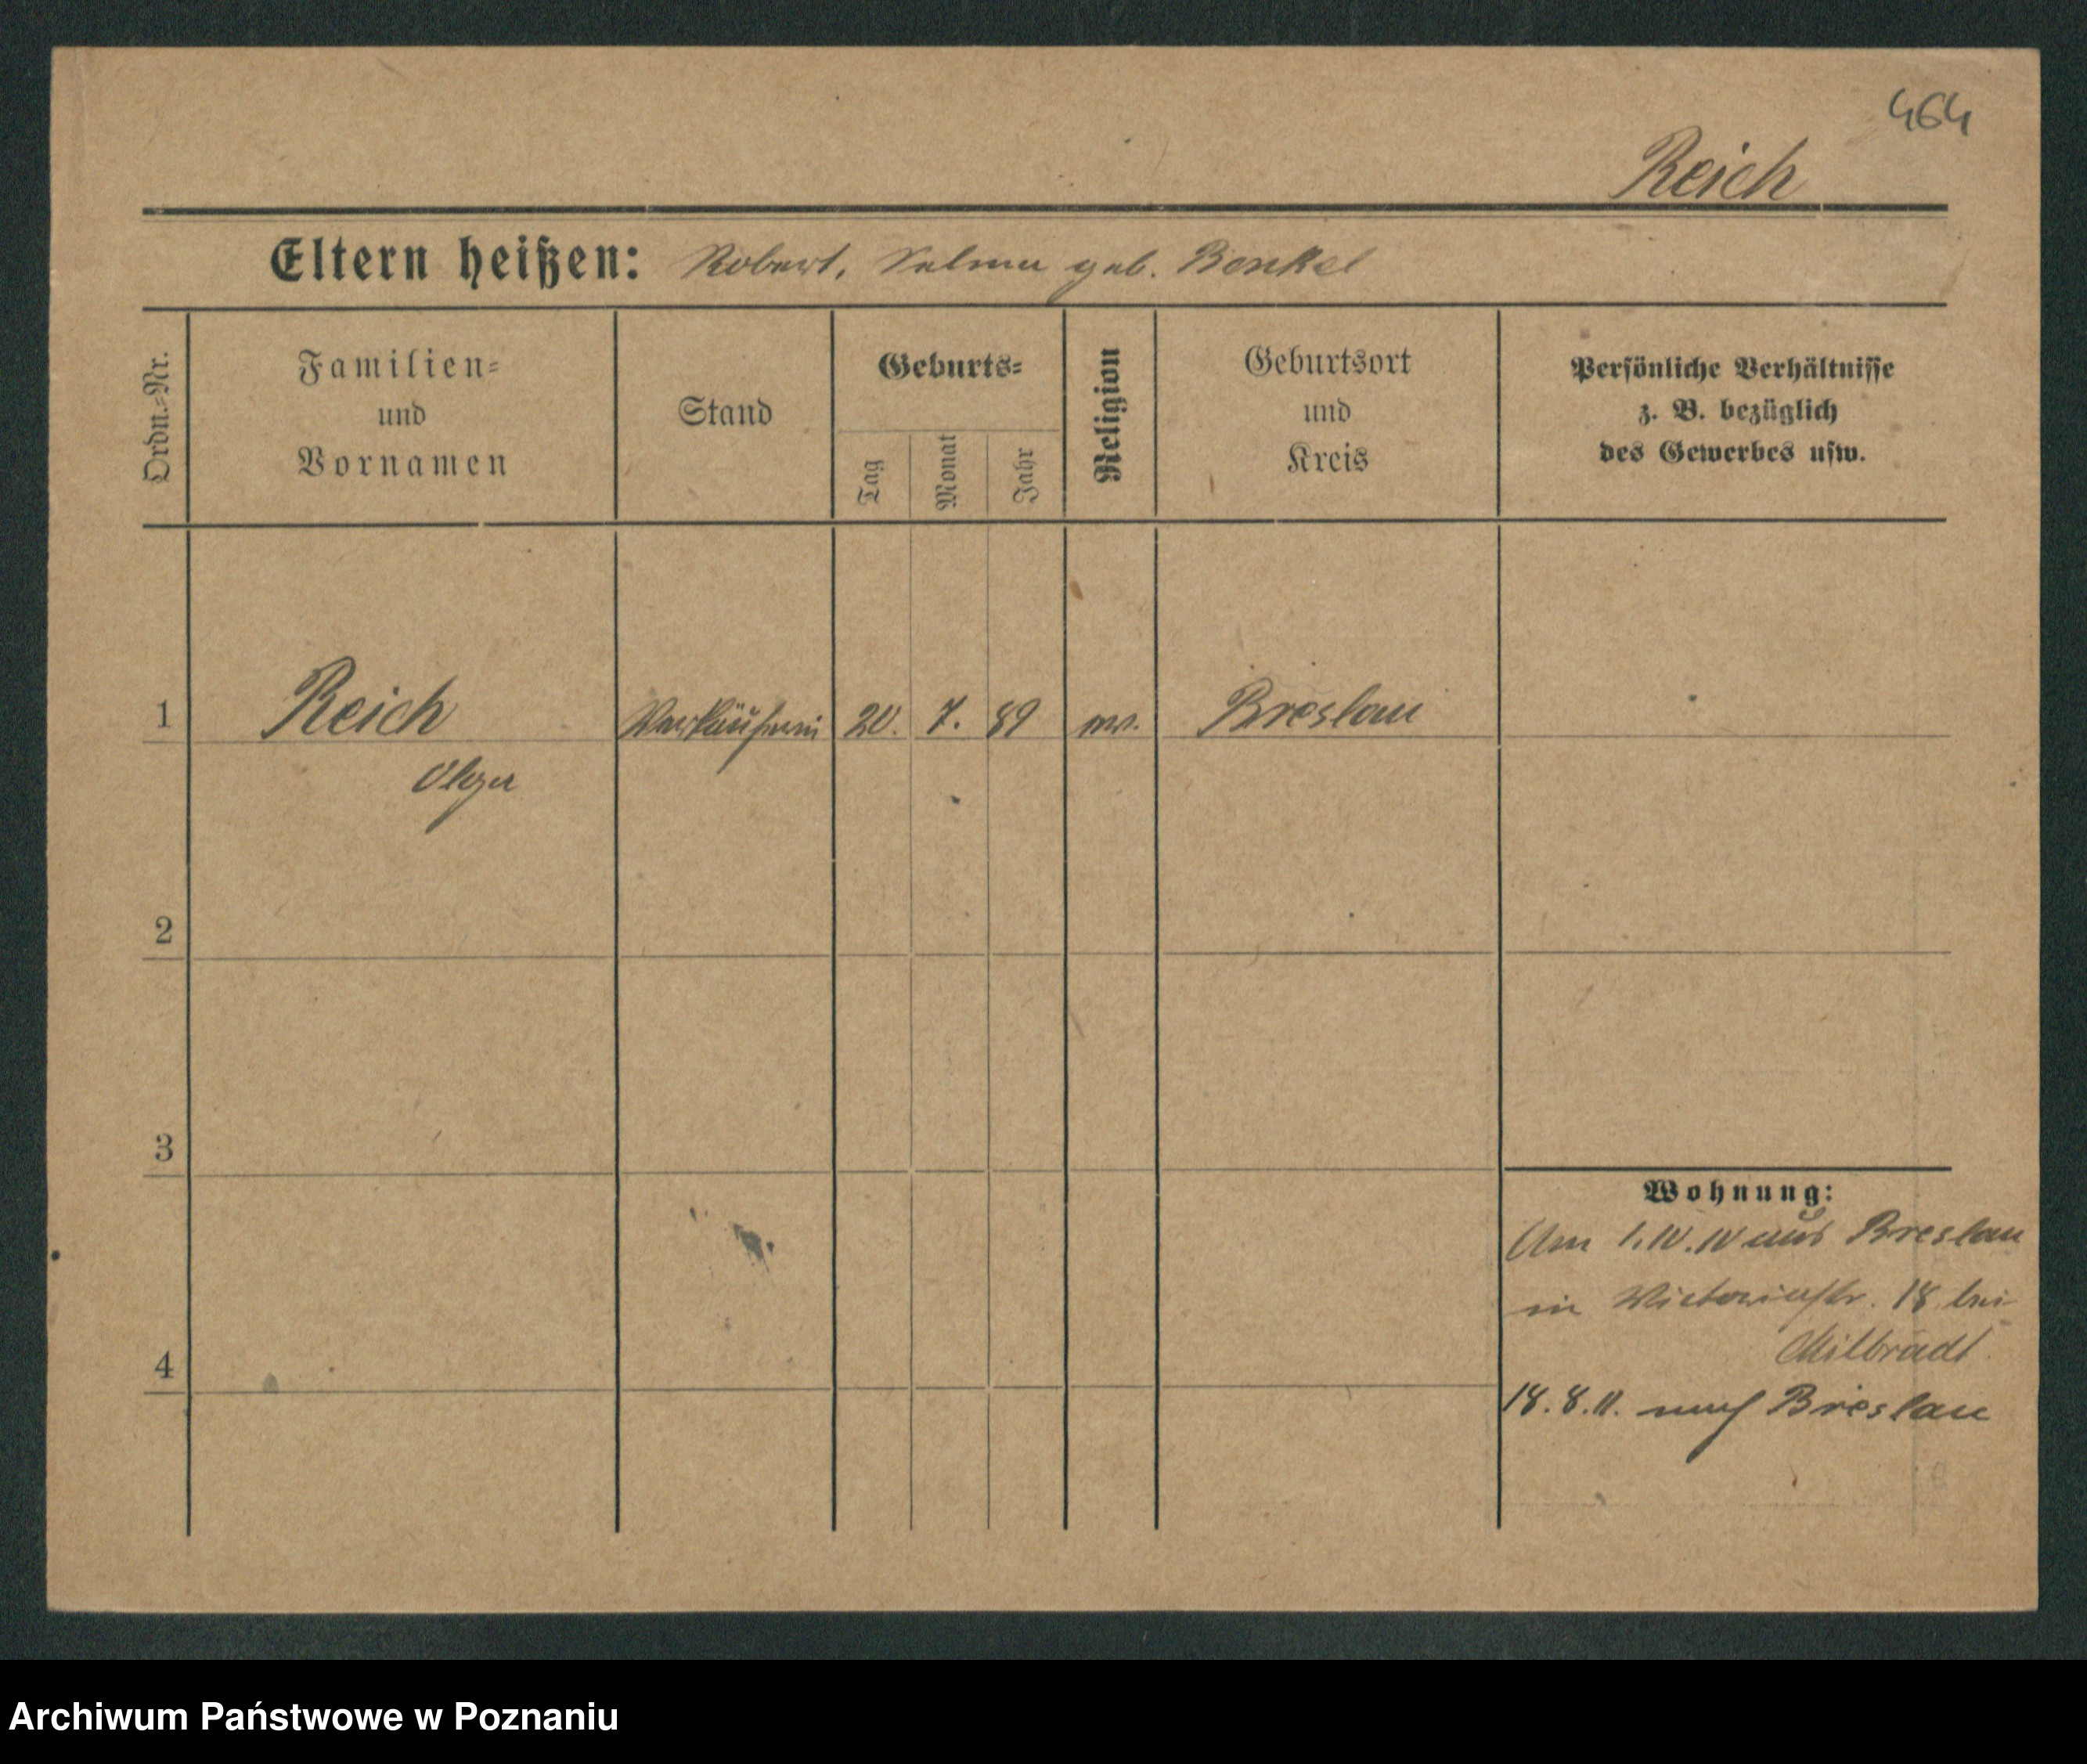 464
Reich
Eltern heißen: Robert, Selma geb. Benkel
Ordn.=Nr.
Familien=
und
Vornamen
Stand
Geburts=
Tag
Monat
Jahr
Religion
Geburtsort
und
Kreis
Persönliche Verhältnisse
z. B. bezüglich
des Gewerbes usw.
1 Reich Verkäuferin 20. 7. 89 Breslau
Olga
2
3
4
Wohnung:
Am 1.10.10 aus Breslau
in Victoriastr. 18 bei
Milbradt
18.8.11. nach Breslau
Archiwum Państwowe w Poznaniu